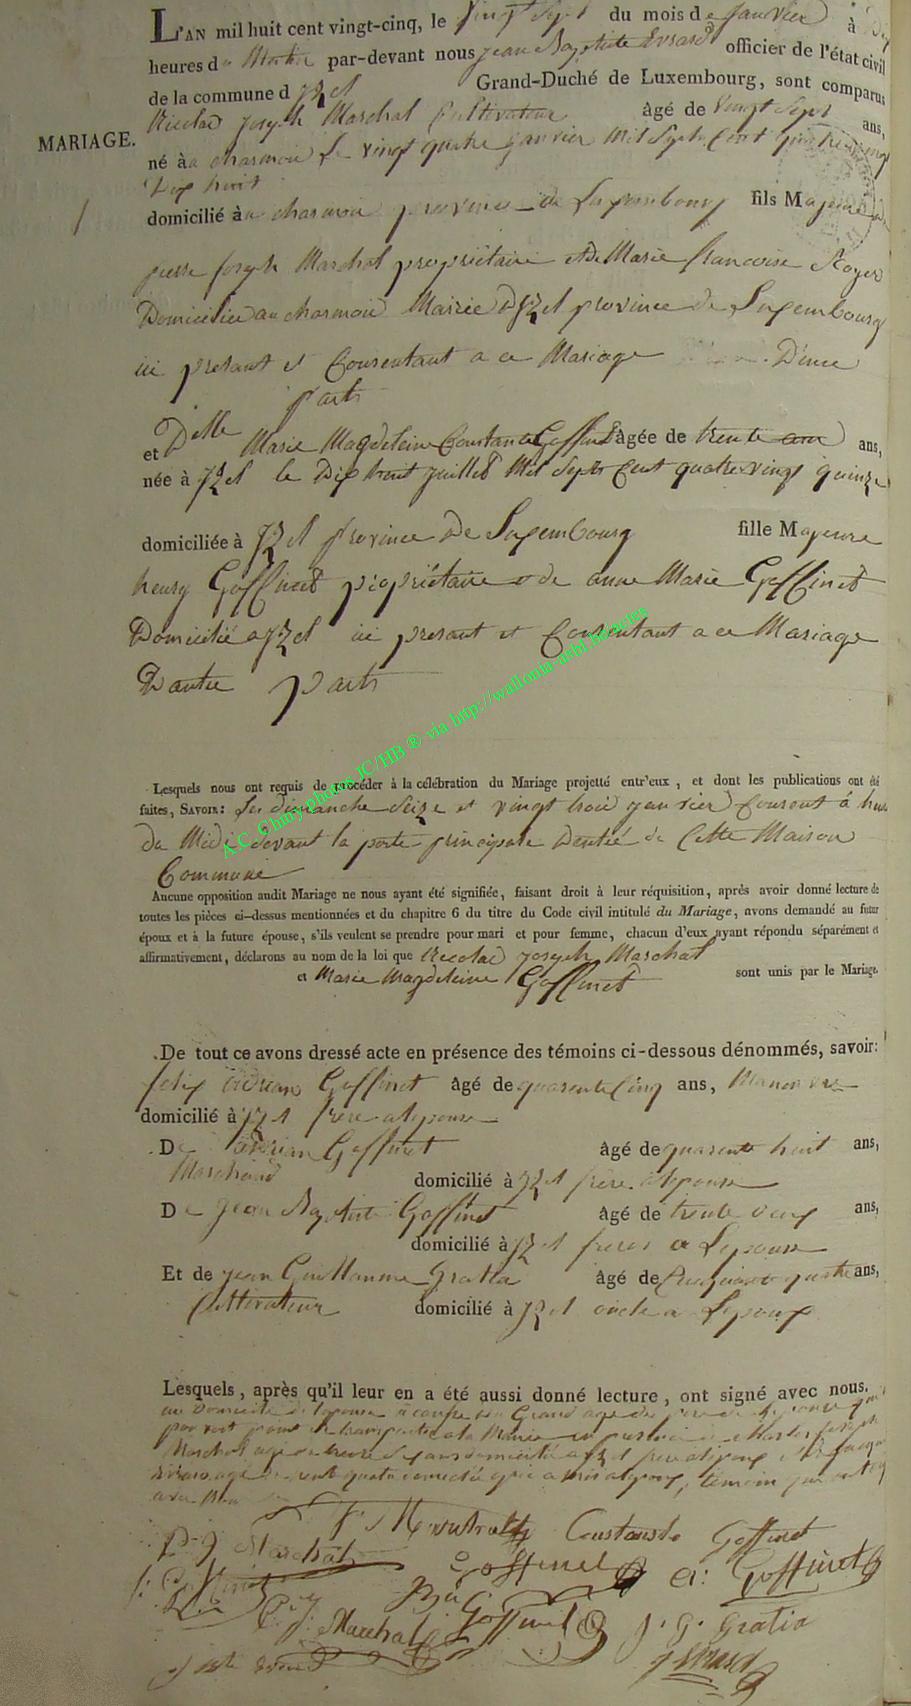 L'AN mil huit cent vingt-cinq, le vingt Sept du mois de Janvier à Dix
heures du Matin par-devant nous jean Baptiste Evrard officier de l'état civil
de la commune d' jzel Grand-Duché de Luxembourg, sont comparus
MARIAGE.
Nicolas joseph Marchal Cultivateur âgé de vingt Sept ans,
né à au charmoi Le vingt quatre janvier Mil Sept Cent quatre vingt
Dix huit
domicilié à au charmoi province de Luxembourg fils Majeure de
pierre joseph Marchal propriétaire et de Marie françoise Roger
Domiciliée au charmoi Mairie d'jzel province de Luxembourg
ici present et Consentant a ce Mariage D'une
part
et Delle Marie Magdeleine Constance Goffinet âgée de trente ans,
née à jzel le Dix huit juillet Mil Sept Cent quatre vingt quinze
domiciliée à jzel province de Luxembourg fille Majeure
henry Goffinet propriétaire et de anne Marie Goffinet
Domicilié a jzel ici present et Consentant a ce Mariage
Dautre part
Lesquels nous ont requis de procéder à la célébration du Mariage projetté entr'eux, et dont les publications ont été
faites, SAVOIR: Les dimanche Seize et vingt trois janvier Courant à heure
de Midi devant la porte principale Dentrée de Cette Maison
Commune
Aucune opposition audit Mariage ne nous ayant été signifiée, faisant droit à leur réquisition, après avoir donné lecture de
toutes les pièces ci-dessus mentionnées et du chapitre 6 du titre du Code civil intitulé du Mariage, avons demandé au futur
époux et à la future épouse, s'ils veulent se prendre pour mari et pour femme, chacun d'eux ayant répondu séparément et
affirmativement, déclarons au nom de la loi que Nicolas joseph Marchal
et Marie Magdeleine Goffinet sont unis par le Mariage.
De tout ce avons dressé acte en présence des témoins ci-dessous dénommés, savoir:
felix adrian Goffinet âgé de quarente Cinq ans, Manoeuvre
domicilié à jzel frere a lepouse
De adrian Goffinet âgé de quarente huit ans,
Marchand domicilié à jzel frere a lepouse
De jean Baptiste Goffinet âgé de trente deux ans,
domicilié à jzel frere a Lepouse
Et de jean Guillaume Gratia âgé de Cinquante quatre ans,
Cultivateur domicilié à jzel oncle a Lepoux
Lesquels, après qu'il leur en a été aussi donné lecture, ont signé avec nous.
au Domicile de lepouse a cause du Grand age du pere de lepouse qui
Marchal agé de ans domicilié a jzel frere a lepoux
P J Marchal Constance Goffinet
Goffinet A: Goffinet
P: J: Marchal Goffinet J. G. Gratia
J Evrard
A.C. Chiny photos JC/HB ® via http://wallonia-asbl.be/actes